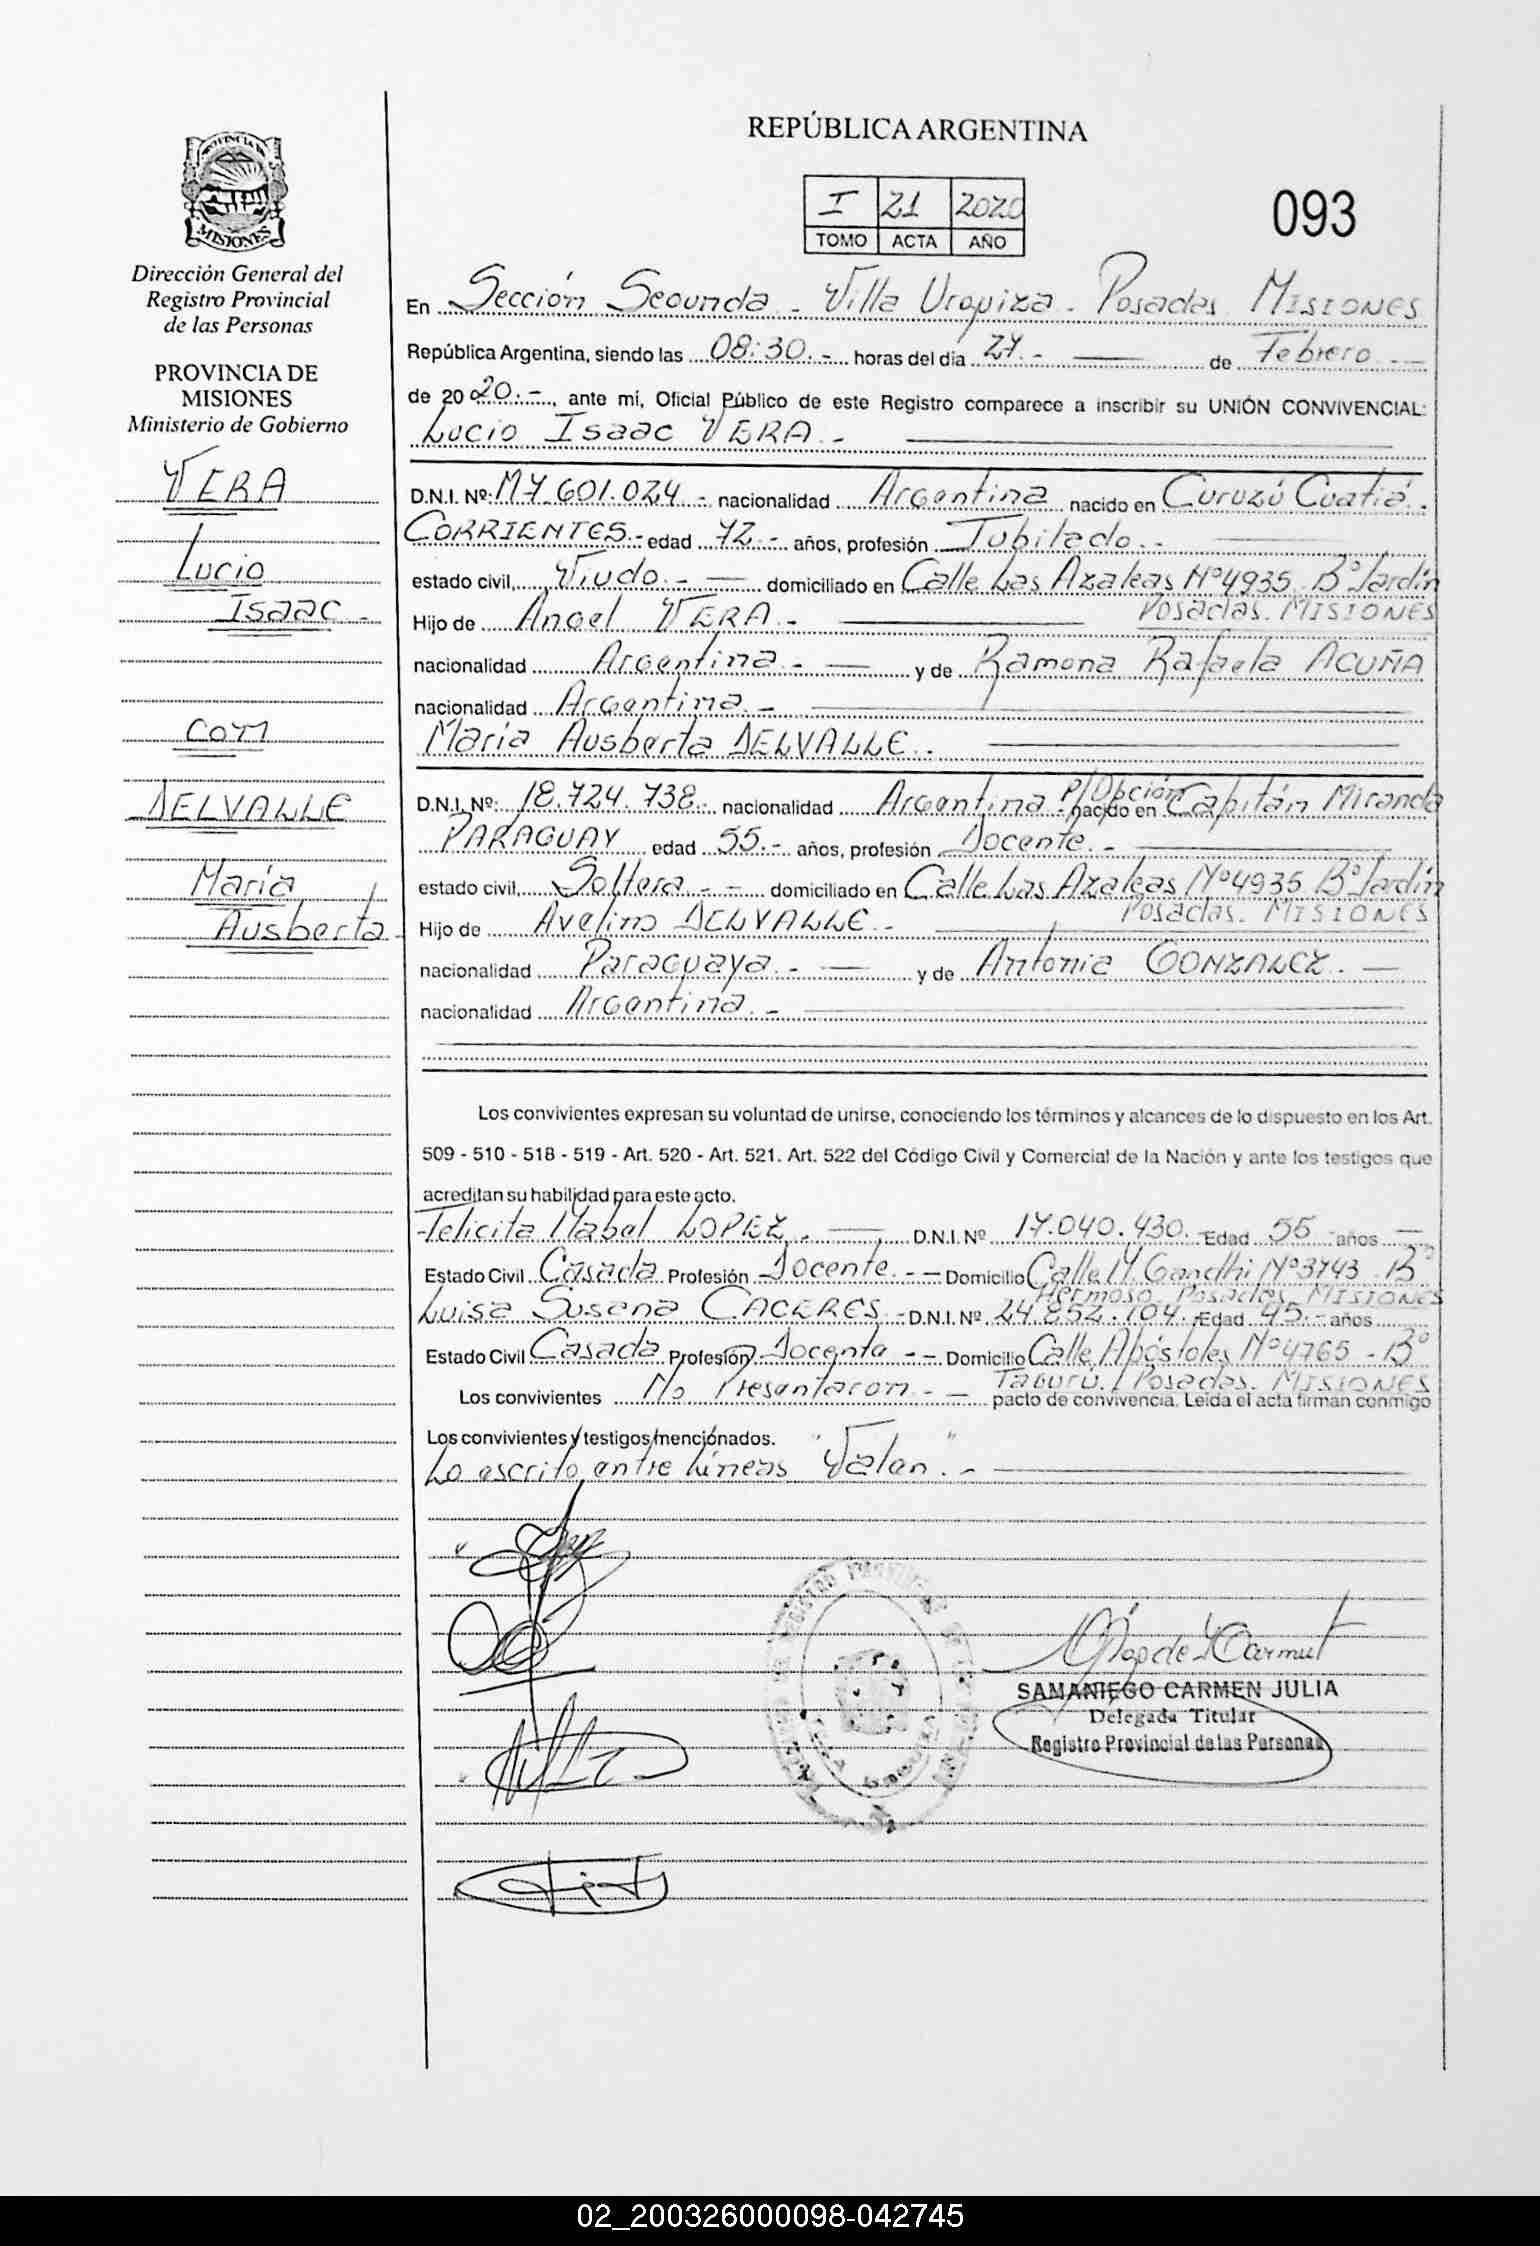 REPÚBLICA ARGENTINA
I 21 2020
TOMO ACTA AÑO
093
PROVINCIA DE
MISIONES
Dirección General del
Registro Provincial
de las Personas
PROVINCIA DE
MISIONES
Ministerio de Gobierno
VERA
Lucio
Isaac -
con
DELVALLE
María
Ausberta
En Sección Segunda - Villa Urquiza - Posadas MISIONES
República Argentina, siendo las 08:30.- horas del día 27.- de Febrero
de 20 20.-, ante mí, Oficial Público de este Registro comparece a inscribir su UNIÓN CONVIVENCIAL:
Lucio Isaac VERA.-
D.N.I. Nº: M7.601.024.- nacionalidad Argentina nacido en Curuzú Cuatiá.
CORRIENTES.- edad 72.- años, profesión Jubilado.-
estado civil, Viudo.- domiciliado en Calle Las Azaleas Nº4935 Bº Jardín
Posadas. MISIONES
Hijo de Angel VERA.-
nacionalidad Argentina.- y de Ramona Rafaela ACUÑA
nacionalidad Argentina.-
María Ausberta DELVALLE.-
P/Opción
D.N.I. Nº: 18.724.738.- nacionalidad Argentina nacido en Capitán Miranda
PARAGUAY edad 55.- años, profesión Docente.-
estado civil, Soltera.- domiciliado en Calle Las Azaleas Nº4935 Bº Jardín
Posadas. MISIONES
Hijo de Avelino DELVALLE.-
nacionalidad Paraguaya.- y de Antonia GONZALEZ.-
nacionalidad Argentina.-
Los convivientes expresan su voluntad de unirse, conociendo los términos y alcances de lo dispuesto en los Art.
509 - 510 - 518 - 519 - Art. 520 - Art. 521. Art. 522 del Código Civil y Comercial de la Nación y ante los testigos que
acreditan su habilidad para este acto.
Felicita Mabel LOPEZ.- D.N.I. Nº 17.040.430.- Edad 55 años
Estado Civil Casada Profesión Docente.- Domicilio Calle M. Gandhi Nº3743 Bº
Hermoso. Posadas. MISIONES
Luisa Susana CACERES.- D.N.I. Nº 24.852.104. Edad 45.- años
Estado Civil Casada Profesión Docente - Domicilio Calle Apóstoles Nº4765 - Bº
Tacurú. Posadas. MISIONES
Los convivientes No Presentaron.- pacto de convivencia. Leída el acta firman conmigo
Los convivientes y testigos mencionados.
Lo escrito entre líneas "Valen".-
SAMANIEGO CARMEN JULIA
Delegada Titular
Registro Provincial de las Personas
02_200326000098-042745